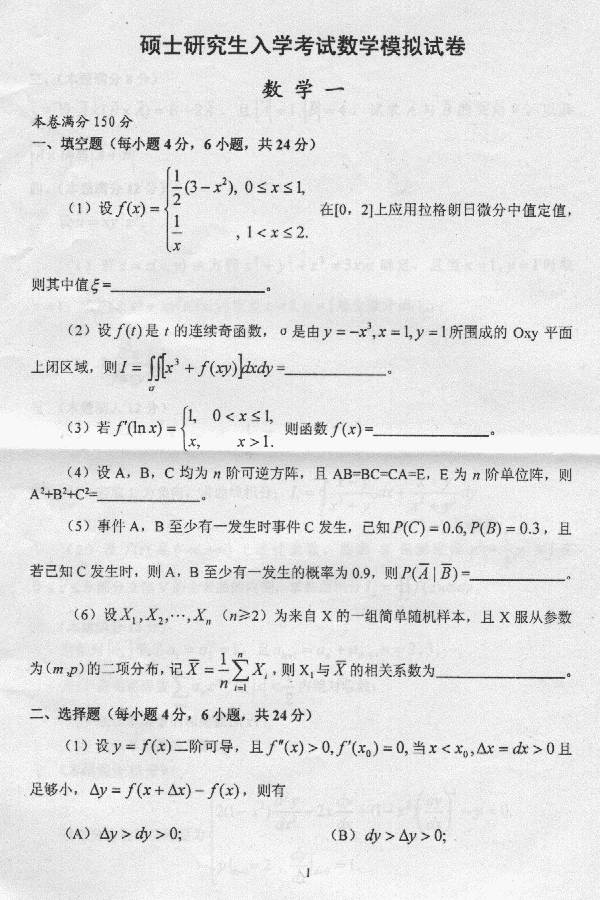 硕士研究生入学考试数学模拟试卷
数 学 一
本卷满分 150 分
一、填空题（每小题 4 分，6 小题，共 24 分）
（1）设 f(x) = { 1/2 (3 − x²), 0 ≤ x ≤ 1, 1/x , 1 < x ≤ 2. 在[0，2]上应用拉格朗日微分中值定值，
则其中值 ξ =____________。
（2）设 f(t) 是 t 的连续奇函数，σ 是由 y = −x³, x = 1, y = 1 所围成的 Oxy 平面
上闭区域，则 I = ∬_σ [x³ + f(xy)]dxdy =____________。
（3）若 f′(ln x) = { 1, 0 < x ≤ 1, x, x > 1. 则函数 f(x) =____________。
（4）设 A，B，C 均为 n 阶可逆方阵，且 AB=BC=CA=E，E 为 n 阶单位阵，则
A²+B²+C²=____________。
（5）事件 A，B 至少有一发生时事件 C 发生，已知 P(C) = 0.6, P(B) = 0.3，且
若已知 C 发生时，则 A，B 至少有一发生的概率为 0.9，则 P(A̅ | B̅) =____________。
（6）设 X₁, X₂, ⋯, Xₙ（n≥2）为来自 X 的一组简单随机样本，且 X 服从参数
为(m,p)的二项分布，记 X̅ = 1/n ∑_{i=1}^{n} X_i，则 X₁ 与 X̅ 的相关系数为____________。
二、选择题（每小题 4 分，6 小题，共 24 分）
（1）设 y = f(x) 二阶可导，且 f″(x) > 0, f′(x₀) = 0, 当 x < x₀, Δx = dx > 0 且
足够小，Δy = f(x + Δx) − f(x)，则有
（A）Δy > dy > 0; （B）dy > Δy > 0;
1